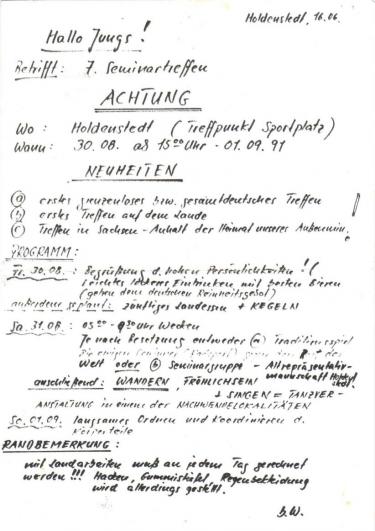 Holdenstedt, 16.06.
Hallo Jungs!
Betrifft: 7. Seminartreffen
ACHTUNG
Wo: Holdenstedt (Treffpunkt Sportplatz)
Wann: 30.08. ab 15⁰⁰ Uhr - 01.09.91
NEUHEITEN
(a) erstes grenzenloses bzw. gesamtdeutsches Treffen
(b) erstes Treffen auf dem Lande
(c) Treffen in Sachsen-Anhalt der Heimat unseres
PROGRAMM:
Fr. 30.08.: Begrüßung d. hohen Persönlichkeiten! (
leichtes lockeres Eintrinken mit besten Bieren
(gehen dem deutschen Reinheitsgebot)
außerdem geplant: zünftiges Landessen + KEGELN
Sa. 31.08.: Uhr Wecken
Je nach Besetzung entweder (a) Traditionsspiel
Die einigen gegen den Rest der
Welt oder (b) Seminargruppe - Allrepräsentativ-
mannschaft
anschließend: WANDERN, FRÖHLICHSEIN
+ SINGEN = TANZVER-
ANSTALTUNG in einem der NACHWENDELOKALITÄTEN
So. 01.09. langsames Ordnen und Koordinieren d.
Körperteile
RANDBEMERKUNG:
mit Landarbeiten muß an jedem Tag gerechnet
werden!!! Hacken, Gummistiefel, Regenbekleidung
wird allerdings gestellt.
B.W.